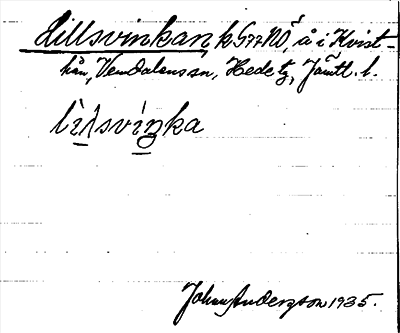 Lillsvinkan, k G77 NÖ, å i Kvist-
hån, Vemdalens sn, Hede tg, Jämtl. l.
lìlsvíŋka
Johan Anderzson 1935.